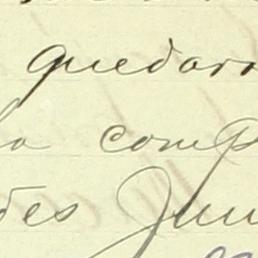 quedaro
la comp
des Jun